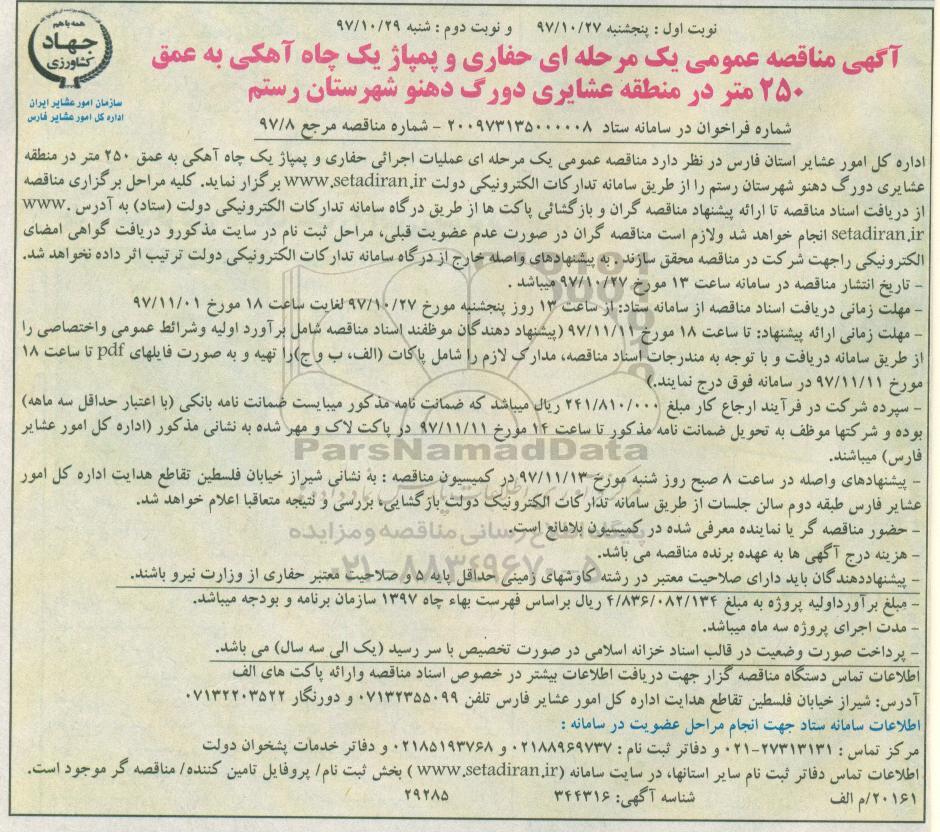 نوبت اول : پنجشنبه ۹۷/۱۰/۲۷ و نوبت دوم : شنبه ۹۷/۱۰/۲۹
همه با هم
جهاد
کشاورزی
سازمان امور عشایر ایران
اداره کل امور عشایر فارس
آگهی مناقصه عمومی یک مرحله ای حفاری و پمپاژ یک چاه آهکی به عمق
۲۵۰ متر در منطقه عشایری دورگ دهنو شهرستان رستم
شماره فراخوان در سامانه ستاد ۲۰۰۹۷۳۱۳۵۰۰۰۰۰۸ - شماره مناقصه مرجع ۹۷/۸
اداره کل امور عشایر استان فارس در نظر دارد مناقصه عمومی یک مرحله ای عملیات اجرائی حفاری و پمپاژ یک چاه آهکی به عمق ۲۵۰ متر در منطقه
عشایری دورگ دهنو شهرستان رستم را از طریق سامانه تدارکات الکترونیکی دولت www.setadiran.ir برگزار نماید. کلیه مراحل برگزاری مناقصه
از دریافت اسناد مناقصه تا ارائه پیشنهاد مناقصه گران و بازگشائی پاکت ها از طریق درگاه سامانه تدارکات الکترونیکی دولت (ستاد) به آدرس www.
setadiran.ir انجام خواهد شد ولازم است مناقصه گران در صورت عدم عضویت قبلی، مراحل ثبت نام در سایت مذکورو دریافت گواهی امضای
الکترونیکی راجهت شرکت در مناقصه محقق سازند. به پیشنهادهای واصله خارج از درگاه سامانه تدارکات الکترونیکی دولت ترتیب اثر داده نخواهد شد.
- تاریخ انتشار مناقصه در سامانه ساعت ۱۳ مورخ ۹۷/۱۰/۲۷ میباشد .
- مهلت زمانی دریافت اسناد مناقصه از سامانه ستاد: از ساعت ۱۳ روز پنجشنبه مورخ ۹۷/۱۰/۲۷ لغایت ساعت ۱۸ مورخ ۹۷/۱۱/۰۱
- مهلت زمانی ارائه پیشنهاد: تا ساعت ۱۸ مورخ ۹۷/۱۱/۱۱ (پیشنهاد دهندگان موظفند اسناد مناقصه شامل برآورد اولیه وشرائط عمومی واختصاصی را
از طریق سامانه دریافت و با توجه به مندرجات اسناد مناقصه، مدارک لازم را شامل پاکات (الف، ب و ج)را تهیه و به صورت فایلهای pdf تا ساعت ۱۸
مورخ ۹۷/۱۱/۱۱ در سامانه فوق درج نمایند.)
- سپرده شرکت در فرآیند ارجاع کار مبلغ ۲۴۱/۸۱۰/۰۰۰ ریال میباشد که ضمانت نامه مذکور میبایست ضمانت نامه بانکی (با اعتبار حداقل سه ماهه)
بوده و شرکتها موظف به تحویل ضمانت نامه مذکور تا ساعت ۱۴ مورخ ۹۷/۱۱/۱۱ در پاکت لاک و مهر شده به نشانی مذکور (اداره کل امور عشایر
فارس) میباشند.
ParsNamadData
- پیشنهادهای واصله در ساعت ۸ صبح روز شنبه مورخ ۹۷/۱۱/۱۳ در کمیسیون مناقصه : به نشانی شیراز خیابان فلسطین تقاطع هدایت اداره کل امور
عشایر فارس طبقه دوم سالن جلسات از طریق سامانه تدارکات الکترونیک دولت بازگشایی، بررسی و نتیجه متعاقبا اعلام خواهد شد.
- حضور مناقصه گر یا نماینده معرفی شده در کمیسیون بلامانع است.
پایگاه اطلاع رسانی مناقصه و مزایده
- هزینه درج آگهی ها به عهده برنده مناقصه می باشد.
۰۲۱-۸۸۳۴۹۶۷۰-۵
- پیشنهاددهندگان باید دارای صلاحیت معتبر در رشته کاوشهای زمینی حداقل پایه ۵ و صلاحیت معتبر حفاری از وزارت نیرو باشند.
- مبلغ برآورداولیه پروژه به مبلغ ۴/۸۳۶/۰۸۲/۱۳۴ ریال براساس فهرست بهاء چاه ۱۳۹۷ سازمان برنامه و بودجه میباشد.
- مدت اجرای پروژه سه ماه میباشد.
- پرداخت صورت وضعیت در قالب اسناد خزانه اسلامی در صورت تخصیص با سر رسید (یک الی سه سال) می باشد.
اطلاعات تماس دستگاه مناقصه گزار جهت دریافت اطلاعات بیشتر در خصوص اسناد مناقصه وارائه پاکت های الف
آدرس: شیراز خیابان فلسطین تقاطع هدایت اداره کل امور عشایر فارس تلفن ۰۷۱۳۲۳۵۵۰۹۹ و دورنگار ۰۷۱۳۲۲۰۳۵۲۲
اطلاعات سامانه ستاد جهت انجام مراحل عضویت در سامانه :
مرکز تماس : ۲۷۳۱۳۱۳۱-۰۲۱ و دفاتر ثبت نام : ۰۲۱۸۸۹۶۹۷۳۷ و ۰۲۱۸۵۱۹۳۷۶۸ و دفاتر خدمات پشخوان دولت
اطلاعات تماس دفاتر ثبت نام سایر استانها، در سایت سامانه (www.setadiran.ir ) بخش ثبت نام/ پروفایل تامین کننده/ مناقصه گر موجود است.
۲۰۱۶۱/م الف شناسه آگهی: ۳۴۴۳۱۶ ۲۹۲۸۵